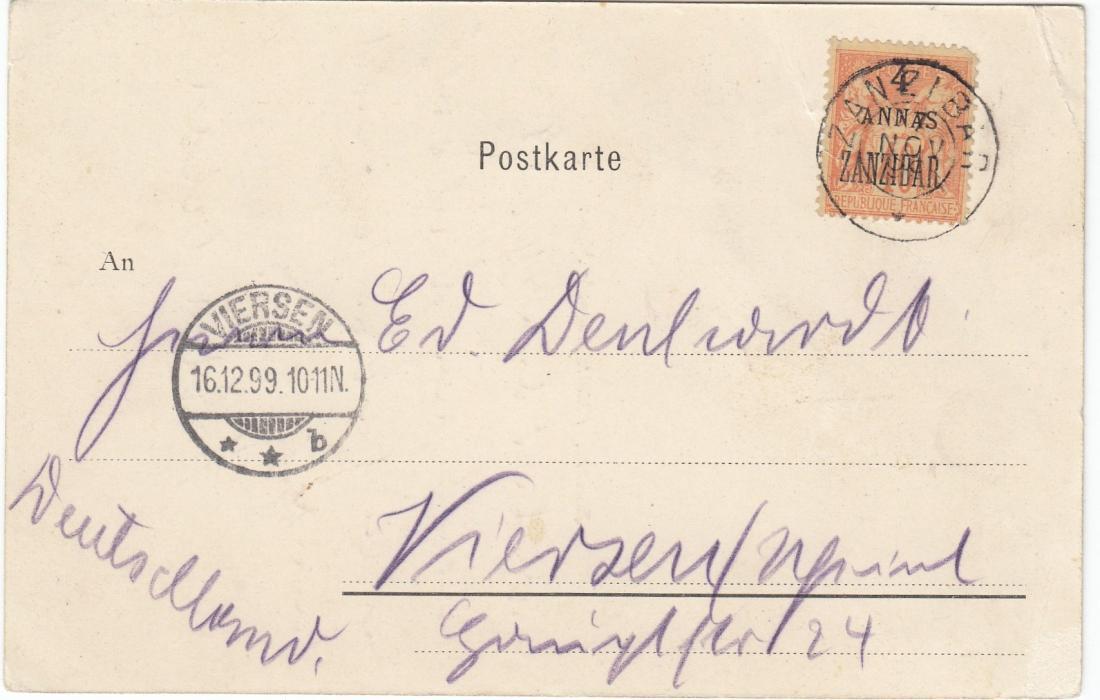 4
ANNAS
ZANZIBAR
REPUBLIQUE FRANÇAISE
ZANZIBAR
NOV
Postkarte
An
VIERSEN
16.12.99.10-11N.
b
Herrn Ed. Denhardt
Viersen/Rheinl
24
Deutschland.